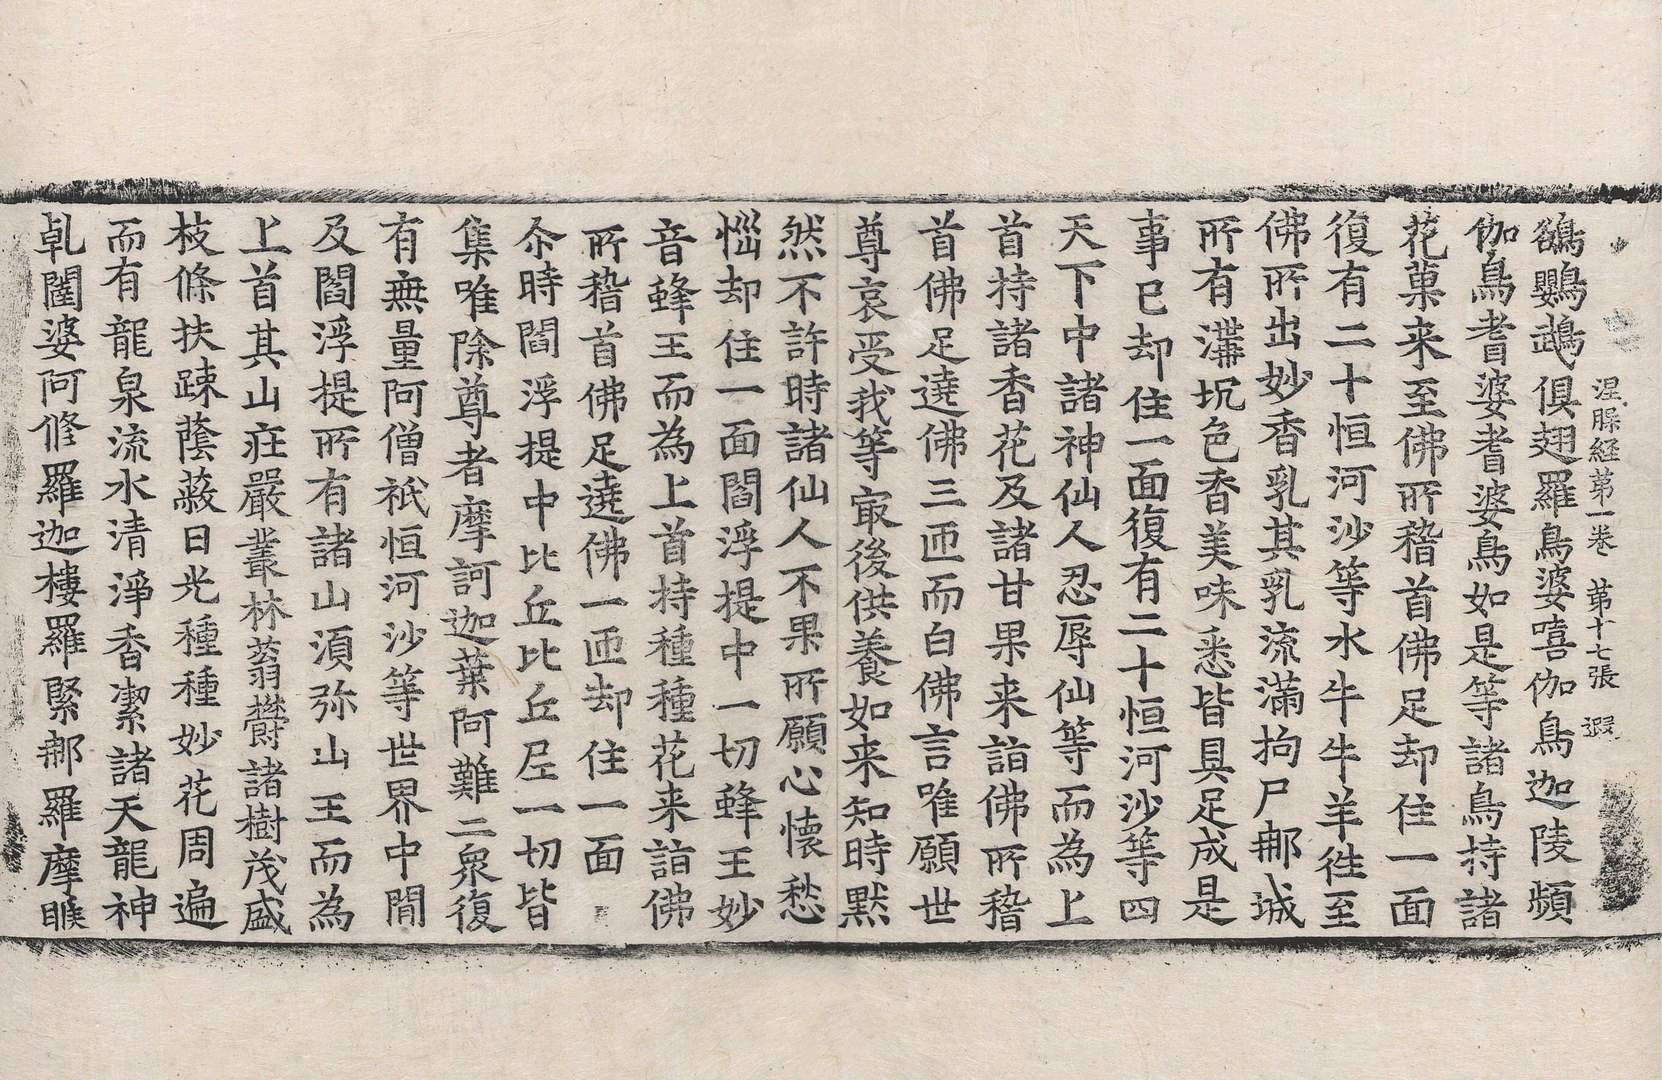 涅槃経苐一卷　苐十七張　遐
鵒鸚鵡俱翅羅鳥婆嘻伽鳥迦陵頻
伽鳥耆婆耆婆鳥如是等諸鳥持諸
花菓来至佛所稽首佛足却住一面
復有二十恒河沙等水牛牛羊徃至
佛所出妙香乳其乳流滿拘尸𨙻城
所有溝坑色香美味悉皆具足成是
事已却住一面復有二十恒河沙等四
天下中諸神仙人忍辱仙等而為上
首持諸香花及諸甘果来詣佛所稽
首佛足遶佛三匝而白佛言唯願世
尊哀受我等㝡後供養如来知時默
然不許時諸仙人不果所願心懷愁
惱却住一面閻浮提中一切蜂王妙
音蜂王而為上首持種種花来詣佛
所稽首佛足遶佛一匝却住一面
尒時閻浮提中比丘比丘尼一切皆
集唯除尊者摩訶迦葉阿難二衆復
有無量阿僧祇恒河沙等世界中閒
及閻浮提所有諸山湏弥山王而為
上首其山莊嚴叢林蓊欝諸樹茂盛
枝條扶踈蔭蔽日光種種妙花周遍
而有龍泉流水清淨香潔諸天龍神
乹闥婆阿修羅迦樓羅緊𨙻羅摩睺